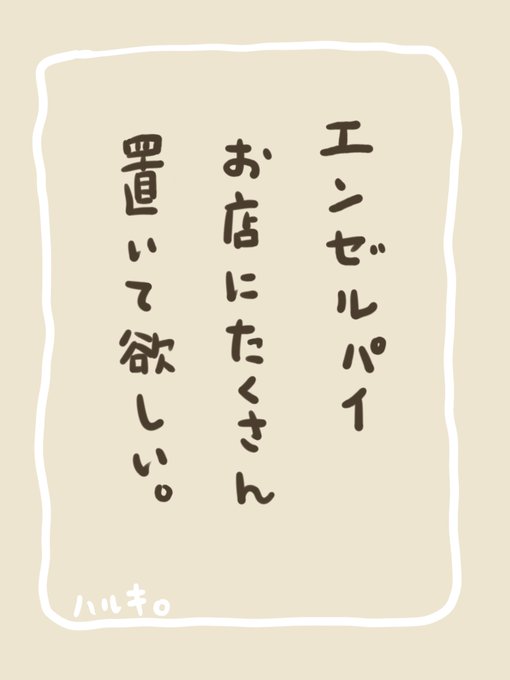 エンゼルパイ
お店にたくさん
置いて欲しい。
ハルキ。